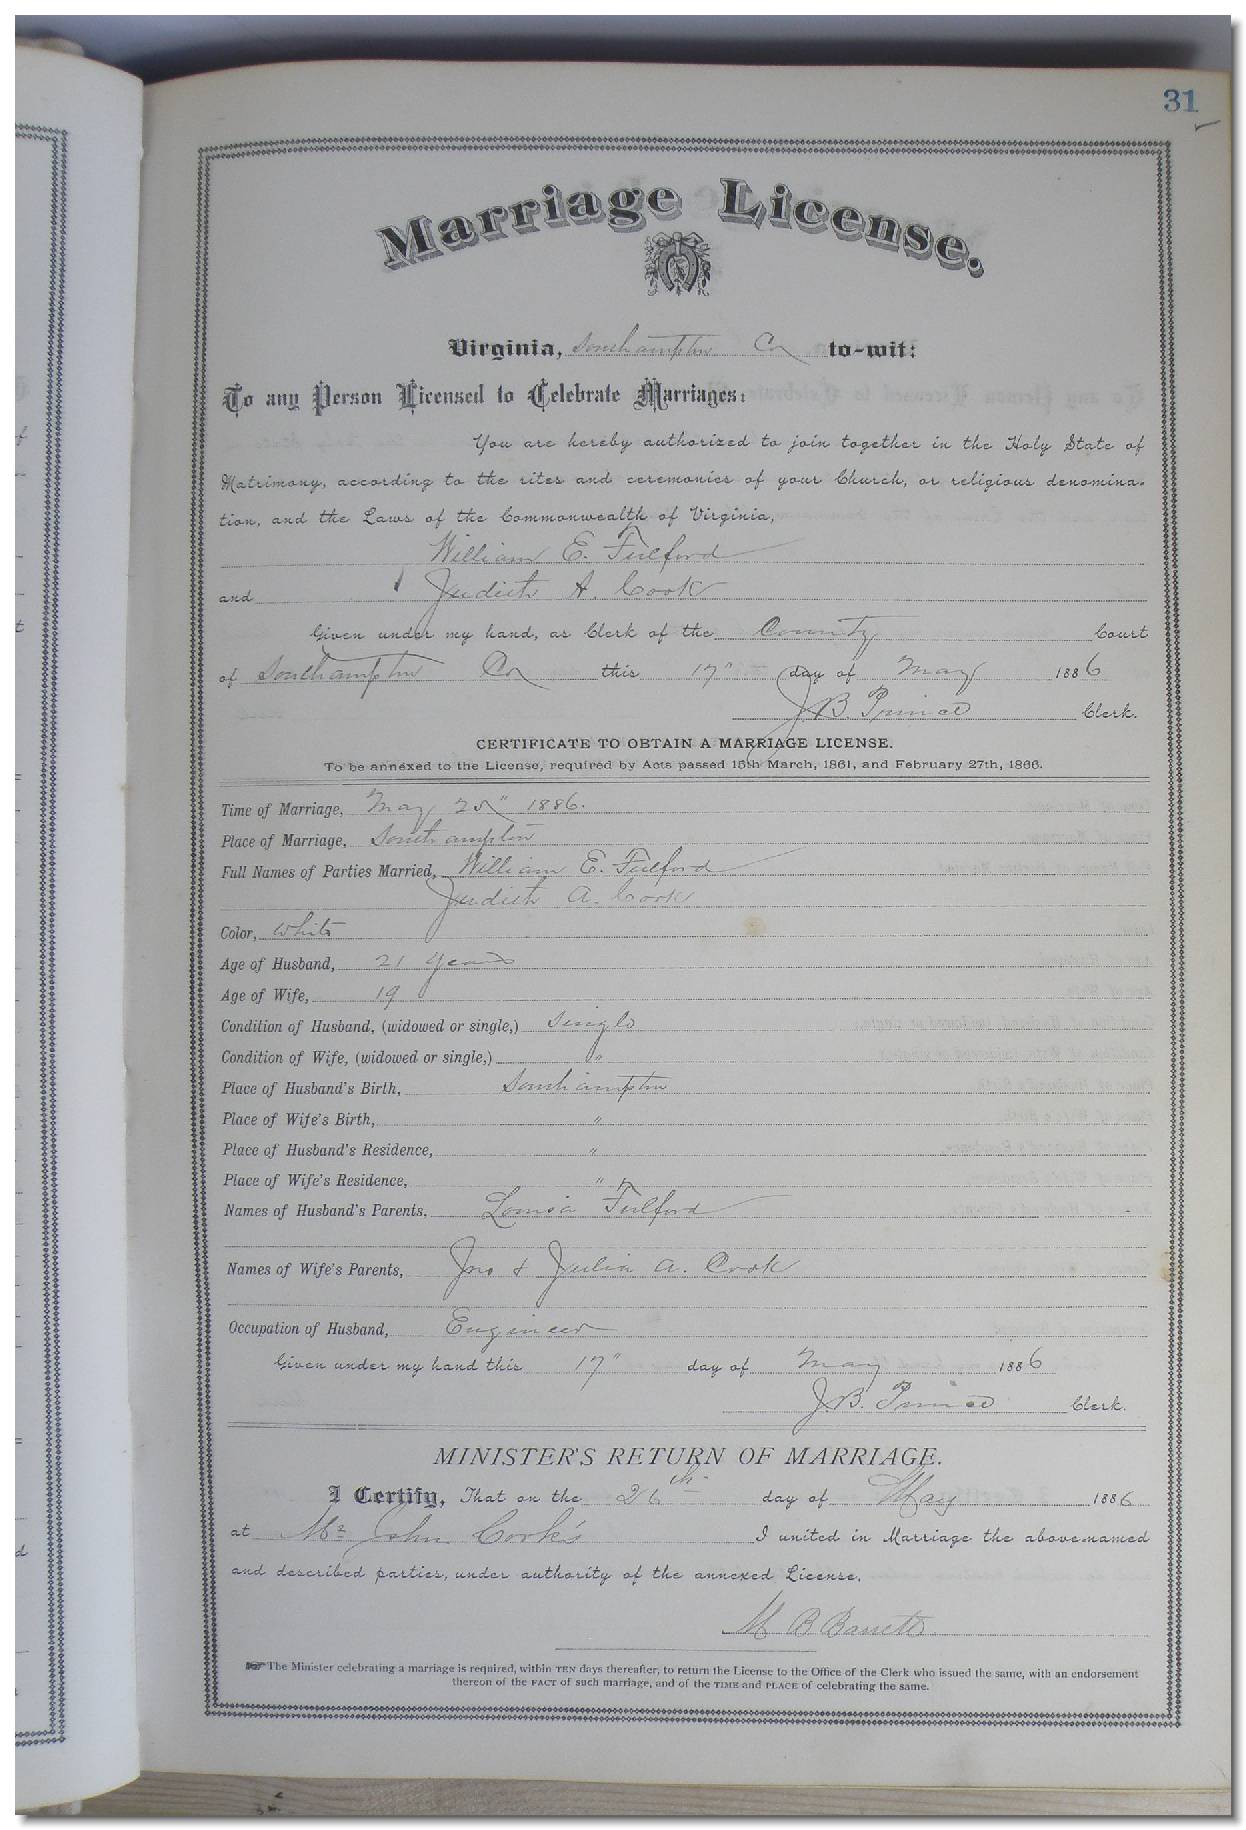 31
Marriage License.
Virginia, Southampton Co to-wit:
To any Person Licensed to Celebrate Marriages:
You are hereby authorized to join together in the Holy State of
Matrimony, according to the rites and ceremonies of your Church, or religious denomina-
tion, and the Laws of the Commonwealth of Virginia,
William E. Fulford
and Judith A. Cook
Given under my hand, as Clerk of the County Court
of Southampton Co this 17" day of May 1886
J. B. Prince Clerk.
CERTIFICATE TO OBTAIN A MARRIAGE LICENSE.
To be annexed to the License, required by Acts passed 15th March, 1861, and February 27th, 1866.
Time of Marriage, May 1886.
Place of Marriage, Southampton
Full Names of Parties Married, William E. Fulford
Judith A. Cook
Color, White
Age of Husband, 21 years
Age of Wife, 19
Condition of Husband, (widowed or single,) Single
Condition of Wife, (widowed or single,) "
Place of Husband's Birth, Southampton
Place of Wife's Birth, "
Place of Husband's Residence, "
Place of Wife's Residence, " "
Names of Husband's Parents. Louisa Fulford
Names of Wife's Parents, Jno & Julia A. Cook
Occupation of Husband, Engineer
Given under my hand this 17" day of May 1886
J. B. Prince Clerk.
MINISTER'S RETURN OF MARRIAGE.
I Certify, That on the 26th day of May 1886
at Mr John Cook's I united in Marriage the above-named
and described parties, under authority of the annexed License.
M B Barrett
The Minister celebrating a marriage is required, within TEN days thereafter, to return the License to the Office of the Clerk who issued the same, with an endorsement
thereon of the FACT of such marriage, and of the TIME and PLACE of celebrating the same.